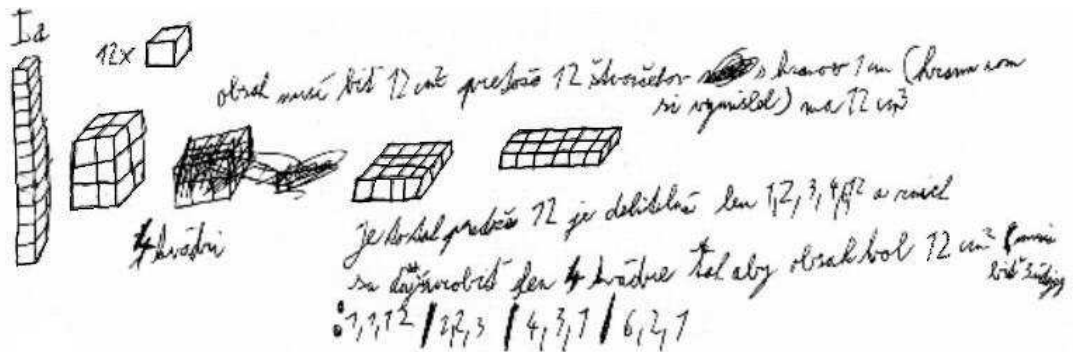 Ia
12x
obsah musí biť 12 cm² pretože 12 štvorčetov s hranov 1 cm (hranu som
si vymislel) ma 12 cm³
4 kvádri
je to tak pretože 12 je delitelná len 1,2,3,4,6,12 a z nich
sa dá virobiť len 4 kvádre tak aby obsah bol 12 cm²
: 1,1,12 / 2,2,3 / 4,3,1 / 6,2,1